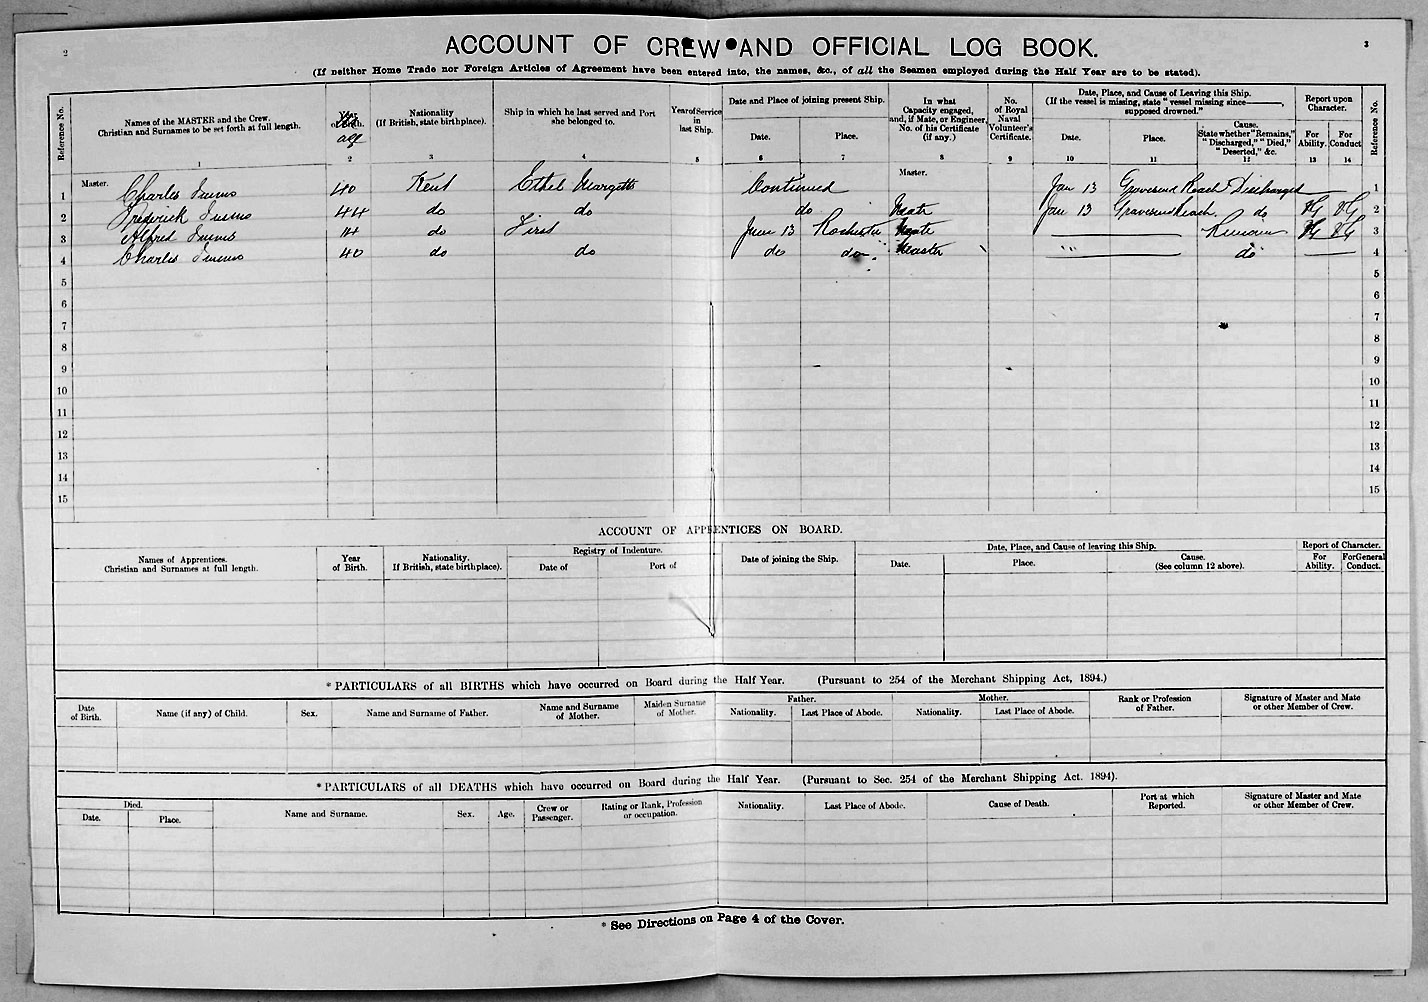 2
3
ACCOUNT OF CREW AND OFFICIAL LOG BOOK.
(If neither Home Trade nor Foreign Articles of Agreement have been entered into, the names, &c., of all the Seamen employed during the Half Year are to be stated).
Reference No.
Names of the MASTER and the Crew.
Christian and Surnames to be set forth at full length.
1
Year
of Birth.
age
2
Nationality
(If British, state birthplace).
3
Ship in which he last served and Port
she belonged to.
4
Year of Service
in
last Ship.
5
Date and Place of joining present Ship.
Date.
6
Place.
7
In what
Capacity engaged,
and, if Mate, or Engineer,
No. of his Certificate
(if any.)
8
No.
of Royal
Naval
Volunteer's
Certificate.
9
Date, Place, and Cause of Leaving this Ship.
(If the vessel is missing, state "vessel missing since———,
supposed drowned."
Date.
10
Place.
11
Cause.
State whether "Remains,"
"Discharged," "Died,"
"Deserted," &c.
12
Report upon
Character.
For
Ability.
13
For
Conduct
14
Reference No.
1 Master. Charles 40 Kent Ethel Margetts Continued Master. Jan 13 Gravesend Reach Discharged 1
2 Frederick 44 do do do Mate Jan 13 Gravesend Reach. do VG VG 2
3 Alfred 14 do First June 13 Rochester Mate Remains VG VG 3
4 Charles 40 do do do do Master " do 4
5 5
6 6
7 7
8 8
9 9
10 10
11 11
12 12
13 13
14 14
15 15
ACCOUNT OF APPRENTICES ON BOARD.
Names of Apprentices.
Christian and Surnames at full length.
Year
of Birth.
Nationality.
If British, state birthplace).
Registry of Indenture.
Date of
Port of
Date of joining the Ship.
Date, Place, and Cause of leaving this Ship.
Date.
Place.
Cause.
(See column 12 above).
Report of Character.
For
Ability.
For General
Conduct.
* PARTICULARS of all BIRTHS which have occurred on Board during the Half Year. (Pursuant to 254 of the Merchant Shipping Act, 1894.)
Date
of Birth.
Name (if any) of Child.
Sex.
Name and Surname of Father.
Name and Surname
of Mother.
Maiden Surname
of Mother.
Father.
Nationality.
Last Place of Abode.
Mother.
Nationality.
Last Place of Abode.
Rank or Profession
of Father.
Signature of Master and Mate
or other Member of Crew.
* PARTICULARS of all DEATHS which have occurred on Board during the Half Year. (Pursuant to Sec. 254 of the Merchant Shipping Act. 1894).
Died.
Date.
Place.
Name and Surname.
Sex.
Age.
Crew or
Passenger.
Rating or Rank, Profession
or occupation.
Nationality.
Last Place of Abode.
Cause of Death.
Port at which
Reported.
Signature of Master and Mate
or other Member of Crew.
* See Directions on Page 4 of the Cover.